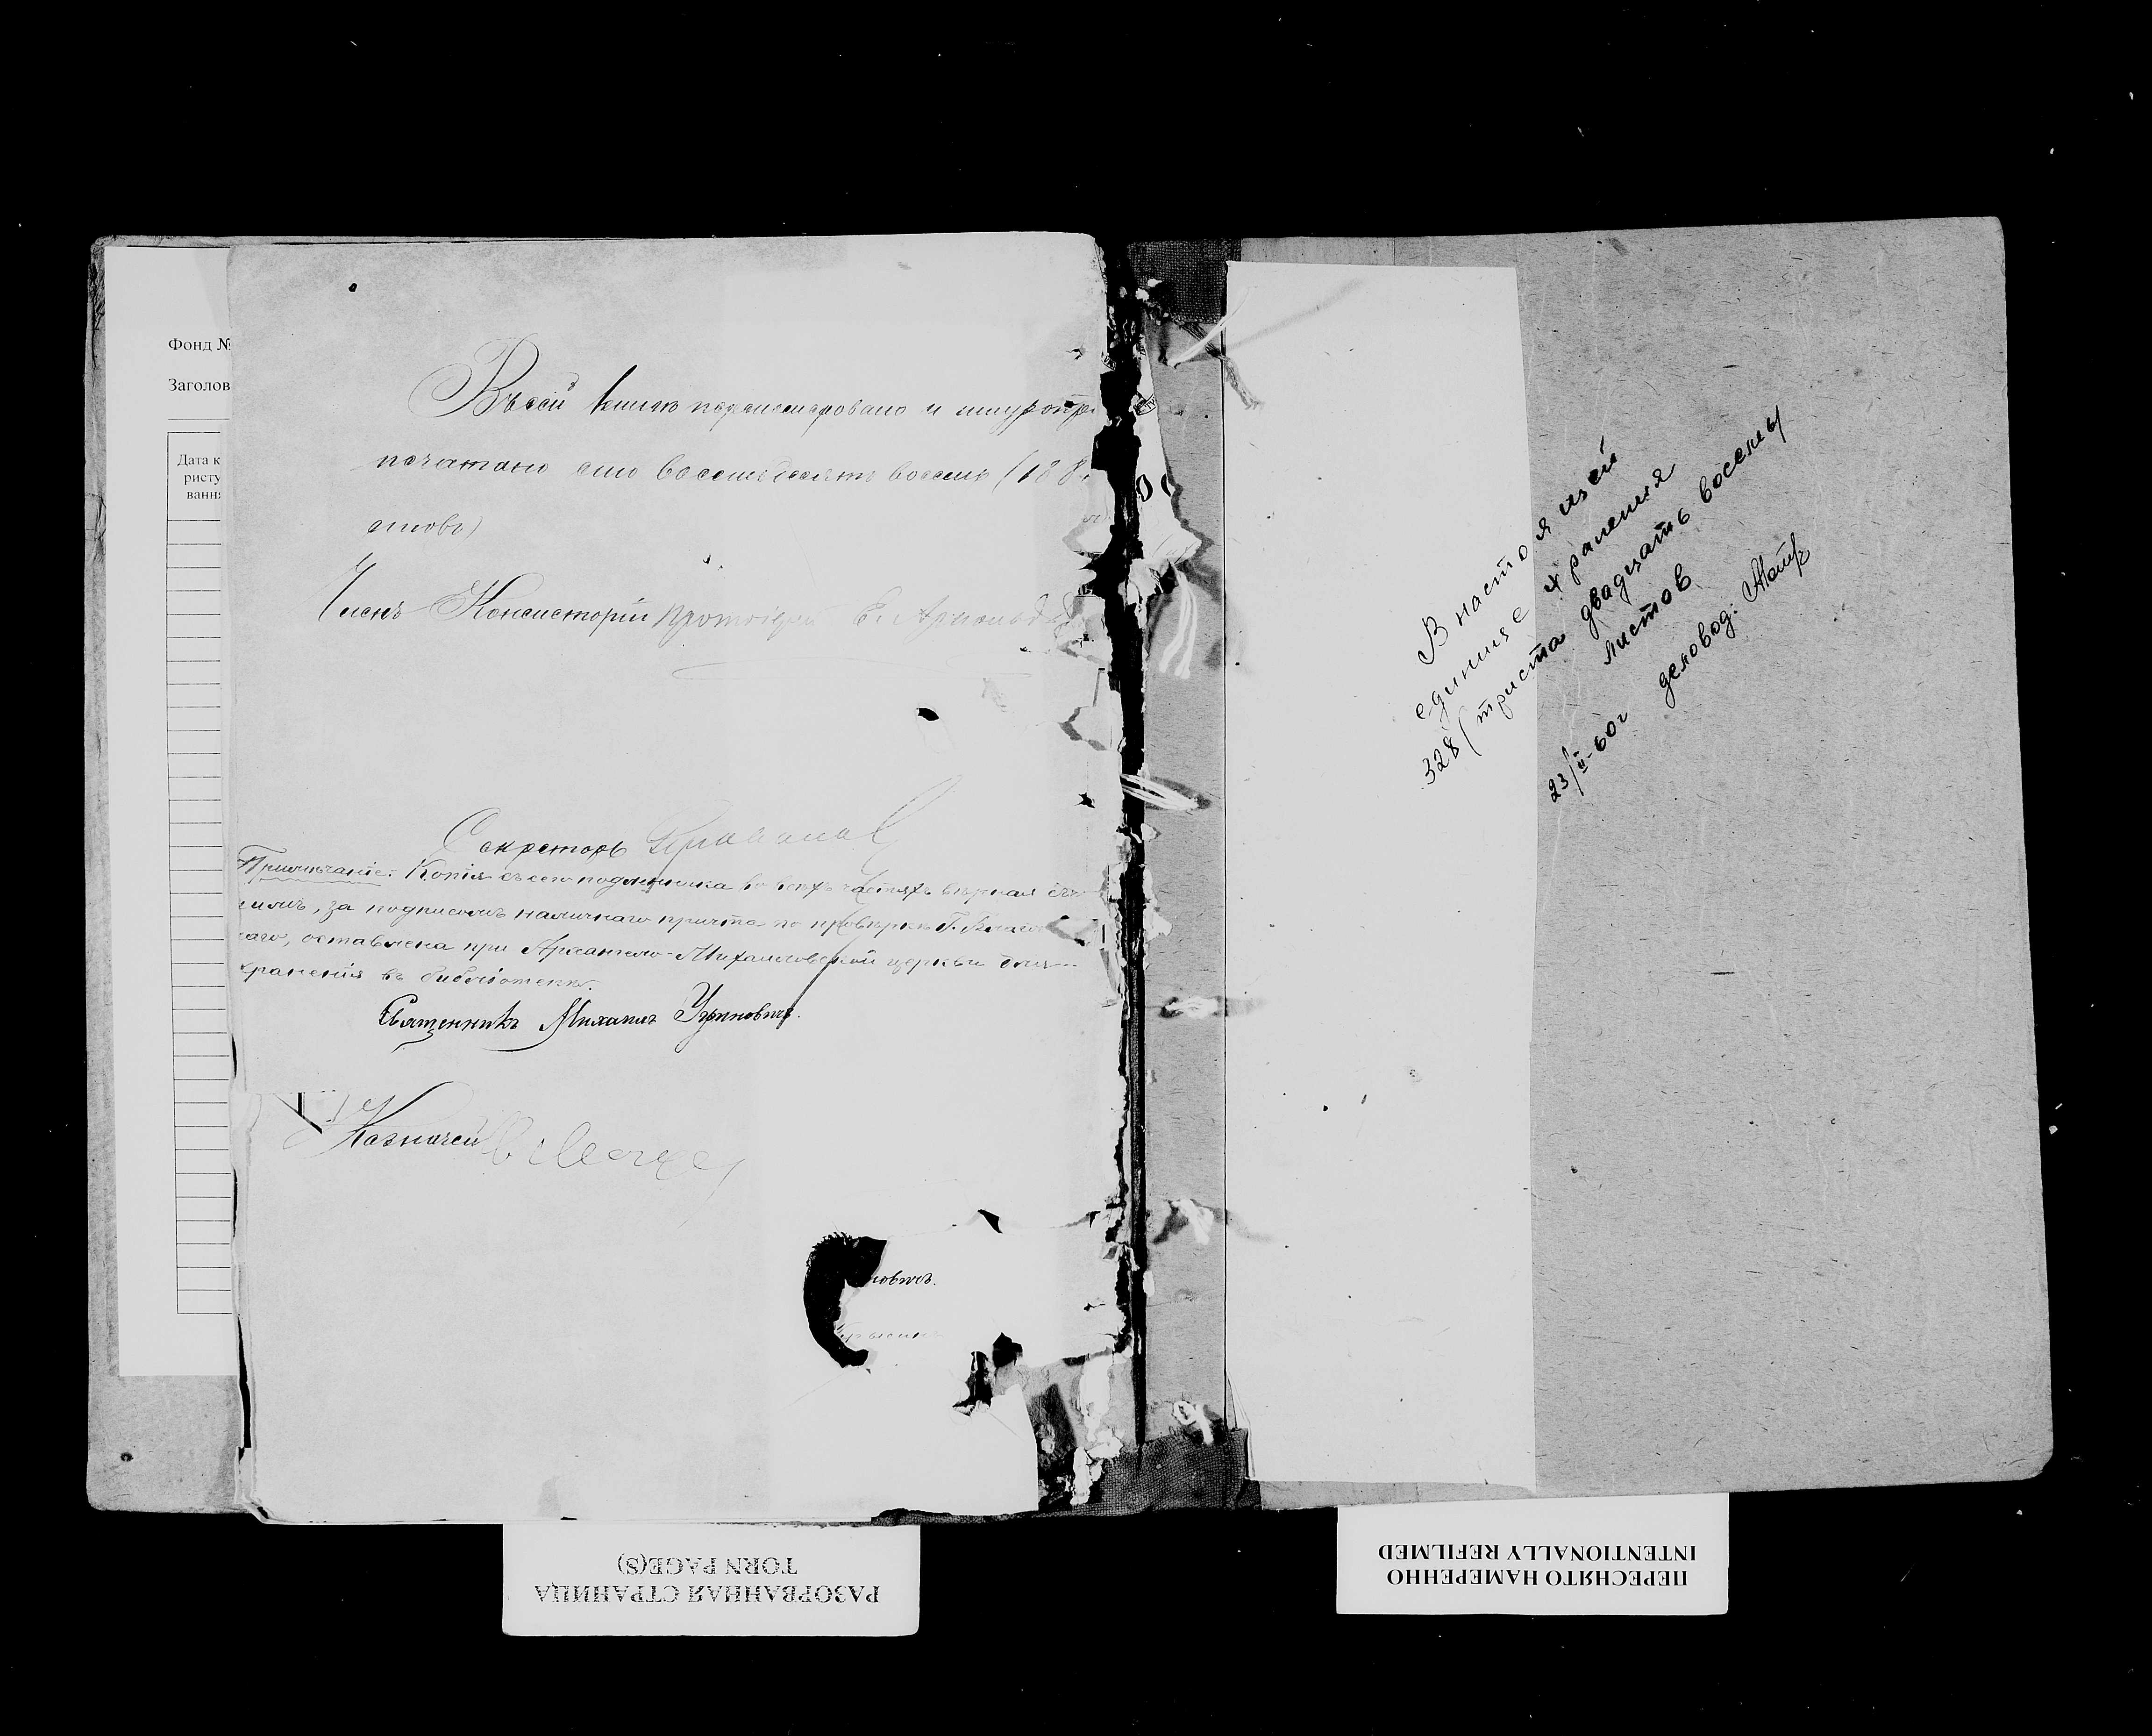 Фонд №
Заголов
Дата к
ристу
ванн
Въ сей книгѣ перенумеровано и шнуропри
печатано сто восемьдесятъ восемь (188
стовъ)
Членъ Консисторіи Протоіерей Е.
Секретарь
Примѣчаніе: Копія съ сего подлинника во всѣхъ частяхъ вѣрная съ
за подписомъ наличнаго причта по провѣркѣ Г.
аго, оставлена при Архангело-Михайловской церкви для
храненія въ библіотекѣ.
Священникъ Михаилъ Угриновичъ.
Казначей
новичъ.
В настоящей
единице хранения
328 (триста двадцать восемь)
листов
23/II-60г деловод:
РАЗОРВАННАЯ СТРАНИЦА
TORN PAGE(S)
ПЕРЕСНЯТО НАМЕРЕННО
INTENTIONALLY REFILMED